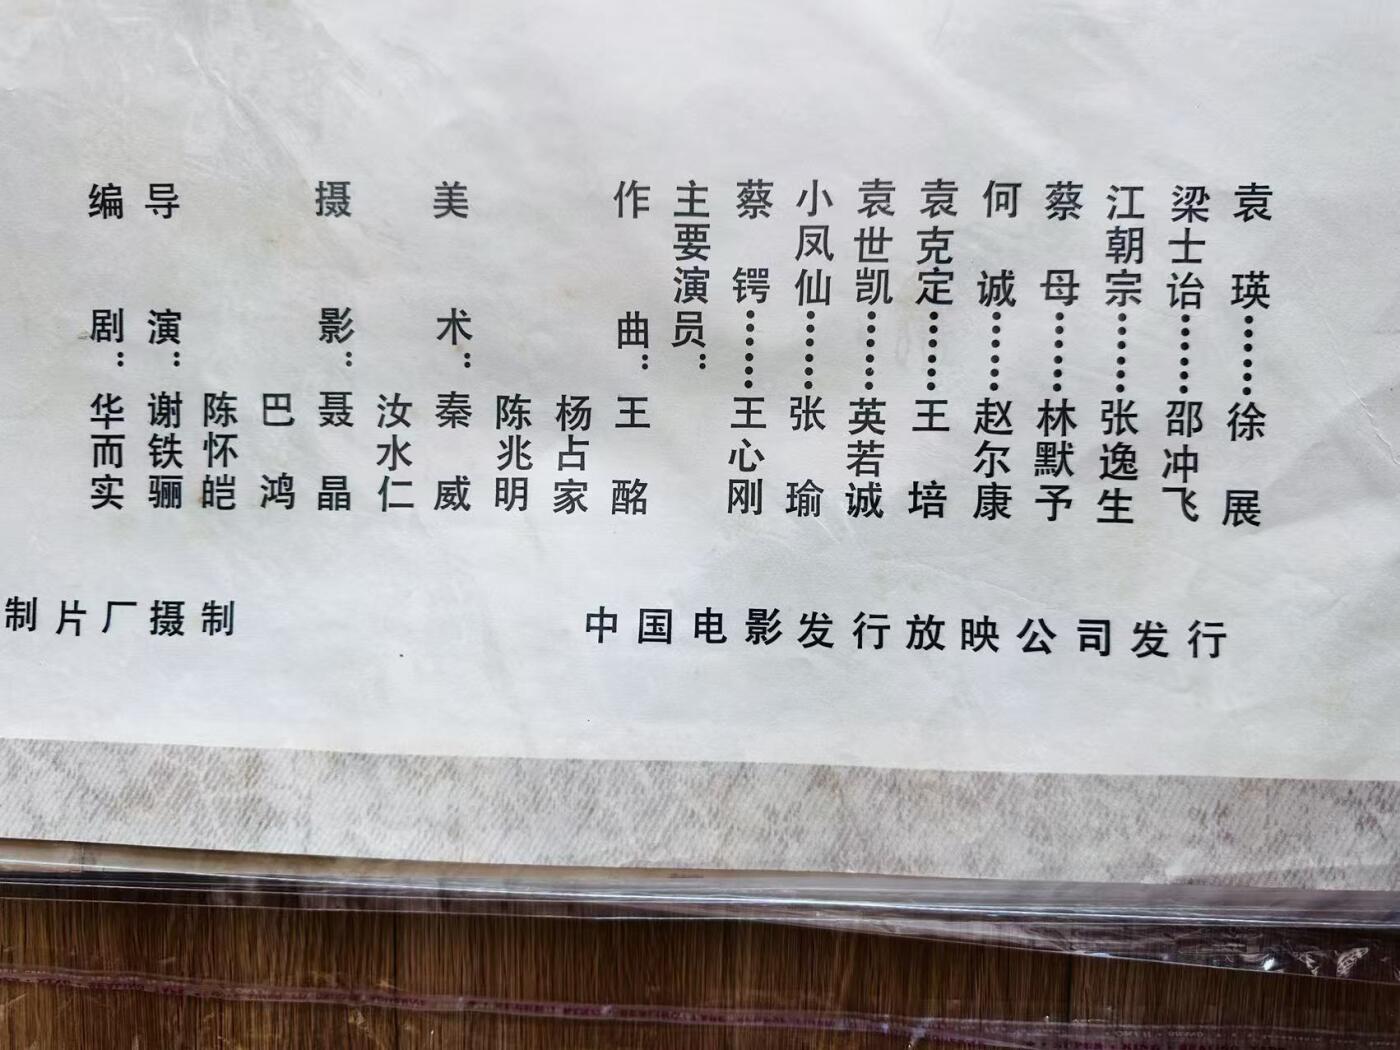 编剧：华而实
导演：谢铁骊
陈怀皑
巴鸿
摄影：聂晶
汝水仁
美术：秦威
陈兆明
杨占家
作曲：王酩
主要演员：
蔡锷……王心刚
小凤仙……张瑜
袁世凯……英若诚
袁克定……王培
何诚……赵尔康
蔡母……林默予
江朝宗……张逸生
梁士诒……邵冲飞
袁瑛……徐展
制片厂摄制
中国电影发行放映公司发行